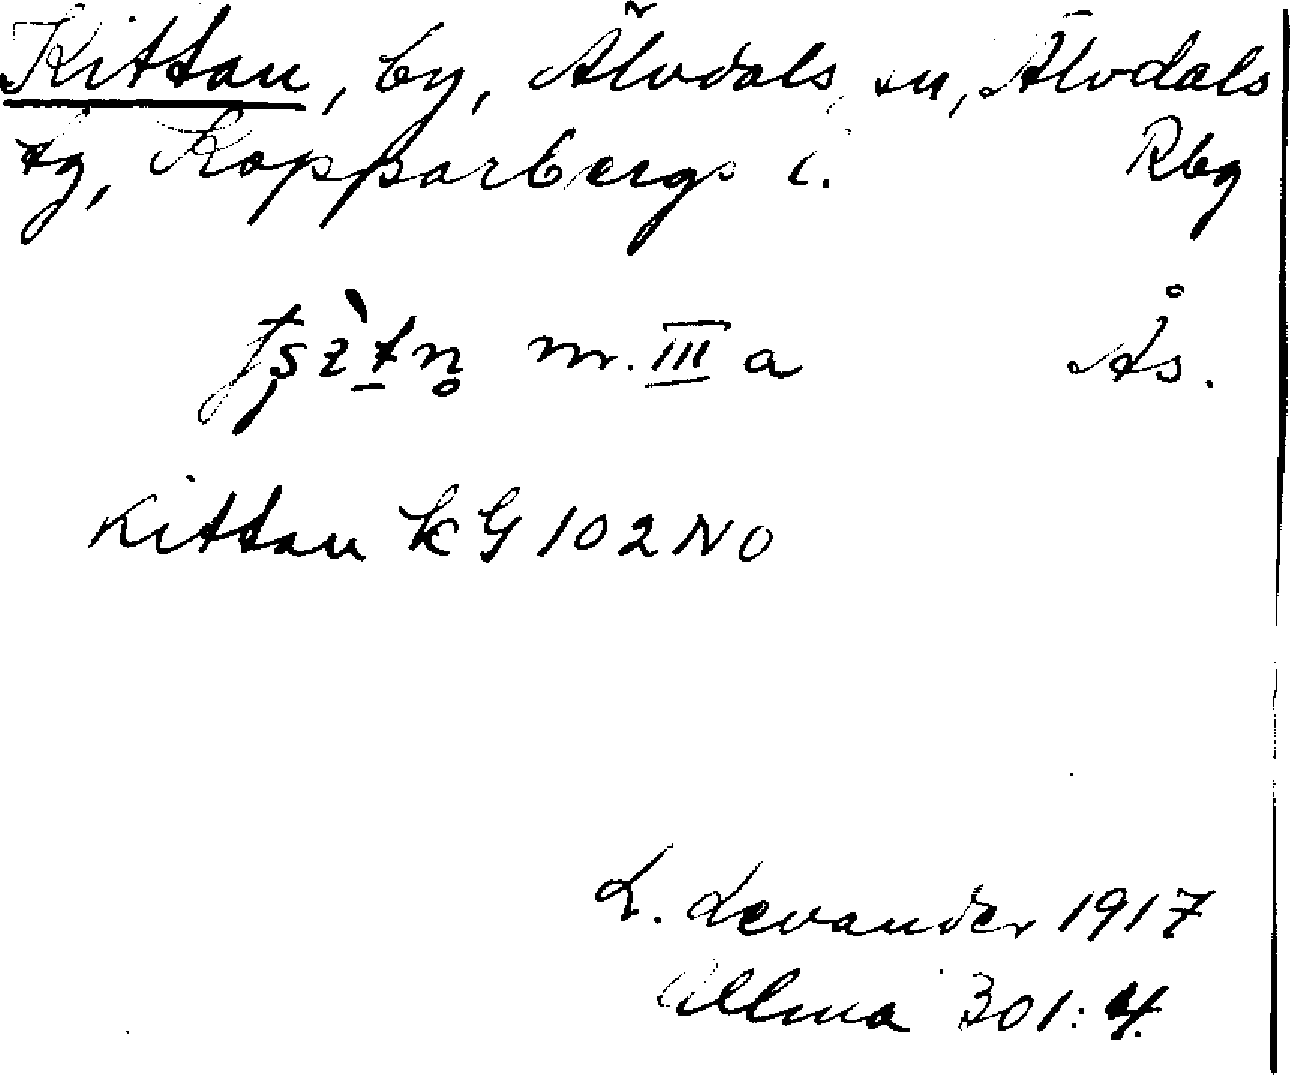 Kittan, by, Älvdals sn, Älvdals
tg, Kopparbergs l. Rbg
m. III a Ås.
Kittan kG 102 NO
L. Levander 1917
Allmä 301:4.